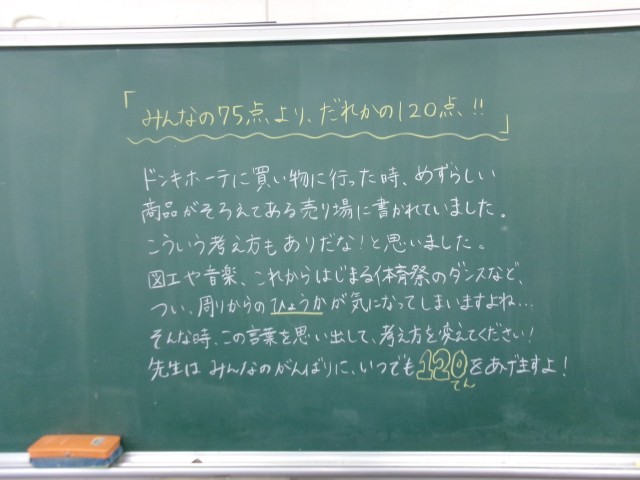 「みんなの75点より、だれかの120点!!」
ドンキホーテに買い物に行った時、めずらしい
商品がそろえてある売り場に書かれていました。
こういう考え方もありだな!と思いました。
図工や音楽、これからはじまる体育祭のダンスなど、
つい、周りからのひょうかが気になってしまいますよね…
そんな時、この言葉を思い出して、考え方を変えてください!
先生はみんなのがんばりに、いつでも120をあげますよ!
てん